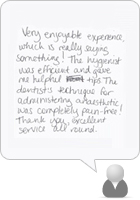 Very enjoyable experience,
which is really saying
something! The hygienist
was efficient and gave
me helpful tips. The
dentists technique for
administering anaesthetic,
was completely pain-free!
Thank you, excellent
service all round.